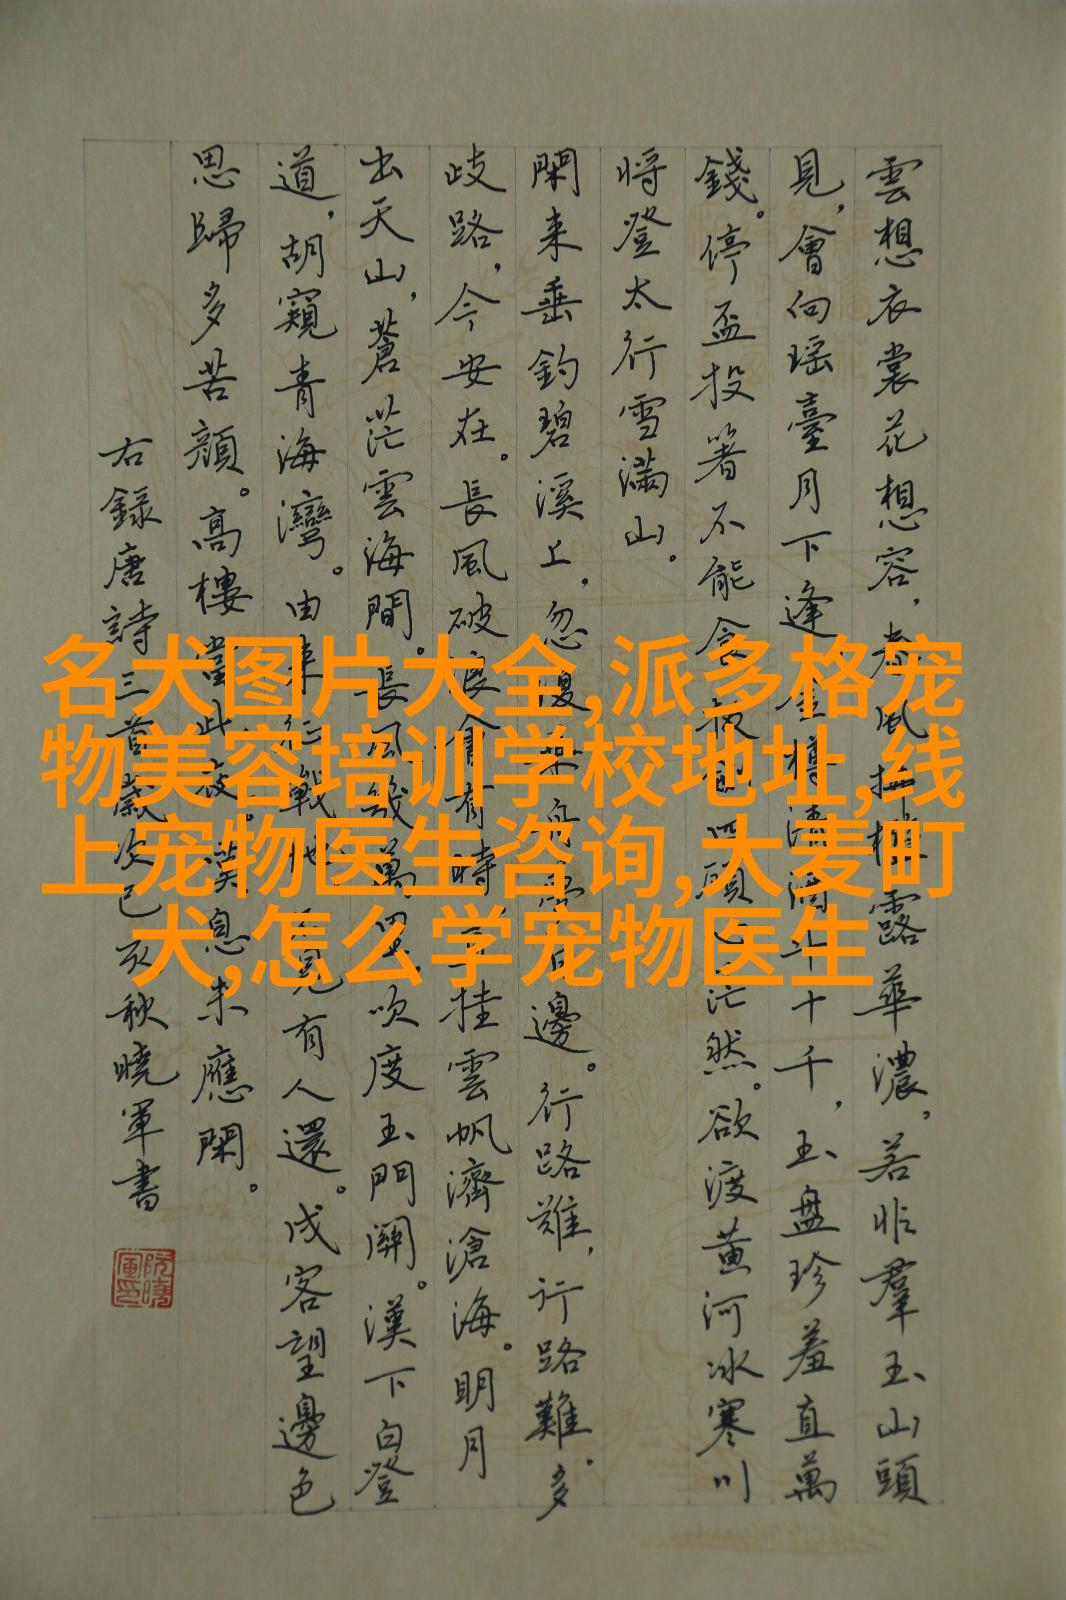 雲想衣裳花想容，春風拂檻露華濃，若非羣玉山頭
見，會向瑶臺月下逢。金樽清酒斗十千，玉盤珍羞直萬
錢。停盃投箸不能食拔劍四顧心茫然。欲渡黄河冰寒川
將登太行雪滿山。
閑来垂釣碧溪上，忽復乘舟夢日邊。行路難，行路難。多
歧路，今安在。長風破浪會有時，直挂雲帆濟滄海。明月
出天山，蒼茫雲海間。長風幾萬里，吹度玉門關。漢下白登
道，胡窺青海灣。由來征戰地，不見有人還。戍客望邊色
思歸多苦顏。高樓當此夜，嘆息未應閑。
右録唐詩三首歲次己亥秋曉軍書
阮曉軍印
名犬图片大全,派多格宠
物美容培训学校地址,线
上宠物医生咨询,大麦町
犬,怎么学宠物医生